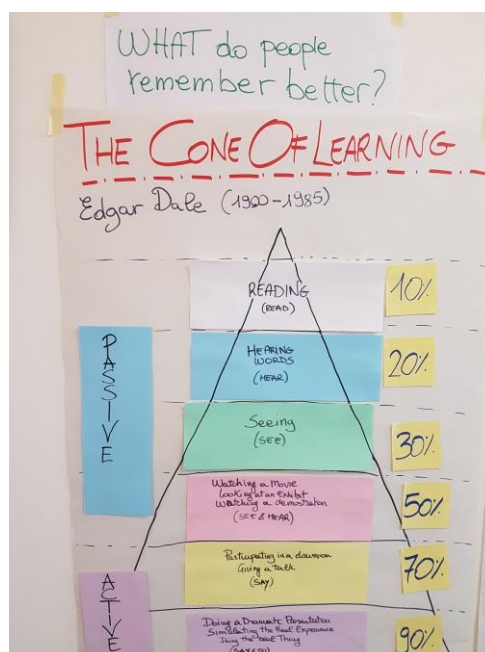 WHAT do people
remember better?
THE CONE OF LEARNING
Edgar Dale (1900-1985)
READING
(READ)
10%
HEARING
WORDS
(HEAR)
20%
Seeing
(SEE)
30%
PASSIVE
Watching a Movie
Looking at an Exhibit
Watching a demostration
(SEE & HEAR)
50%
Participating in a discussion
Giving a talk
(SAY)
70%
ACTIVE
Doing a Dramatic Presentation
Simulating the Real Experience
Doing the Real Thing
90%